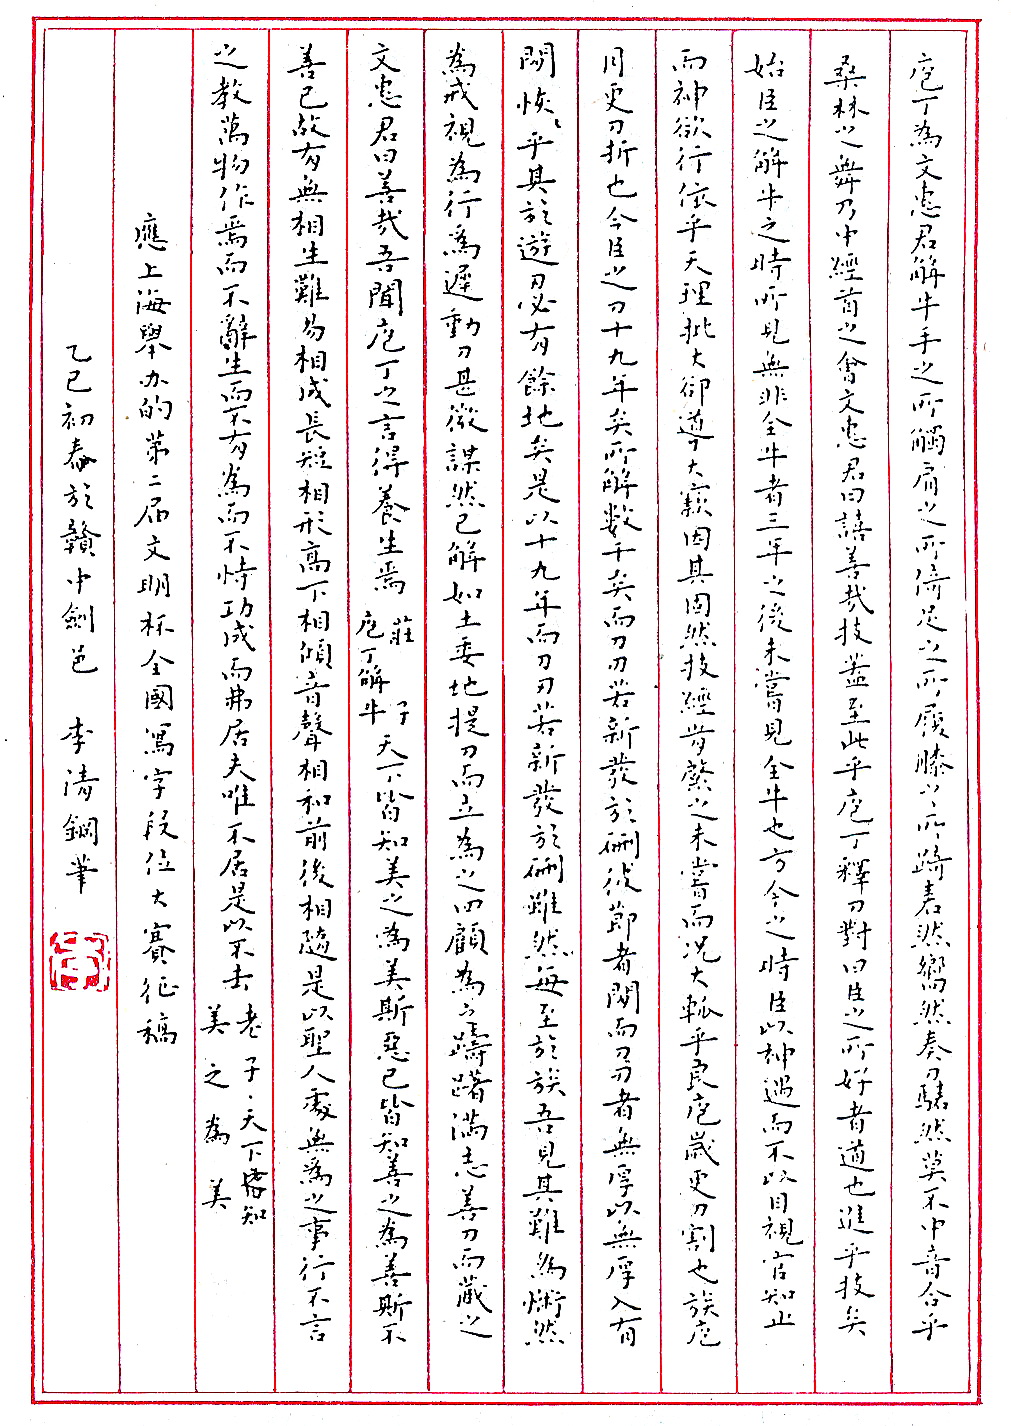 庖丁為文惠君解牛手之所觸肩之所倚足之所履膝之所踦砉然嚮然奏刀騞然莫不中音合乎
桑林之舞乃中經首之會文惠君曰譆善哉技蓋至此乎庖丁釋刀對曰臣之所好者道也進乎技矣
始臣之解牛之時所見無非全牛者三年之後未嘗見全牛也方今之時臣以神遇而不以目視官知止
而神欲行依乎天理批大郤導大窾因其固然技經肯綮之未嘗而況大軱乎良庖歲更刀割也族庖
月更刀折也今臣之刀十九年矣所解数千矣而刀刃若新發於硎彼節者閒而刀刃者無厚以無厚入有
閒恢〻乎其於遊刃必有餘地矣是以十九年而刀刃若新發於硎雖然每至於族吾見其難為怵然
為戒視為行為遲動刀甚微謋然已解如土委地提刀而立為之四顧為之躊躇滿志善刀而藏之
文惠君曰善哉吾聞庖丁之言得養生焉 莊子 庖丁解牛 天下皆知美之為美斯惡已皆知善之為善斯不
善已故有無相生難易相成長短相形高下相傾音聲相和前後相隨是以聖人處無為之事行不言
之教萬物作焉而不辭生而不有為而不恃功成而弗居夫唯不居是以不去 老子·天下皆知美之為美
應上海舉办的第二届文明杯全國寫字段位大賽征稿
乙巳初春於贛中劍邑 李清鋼筆